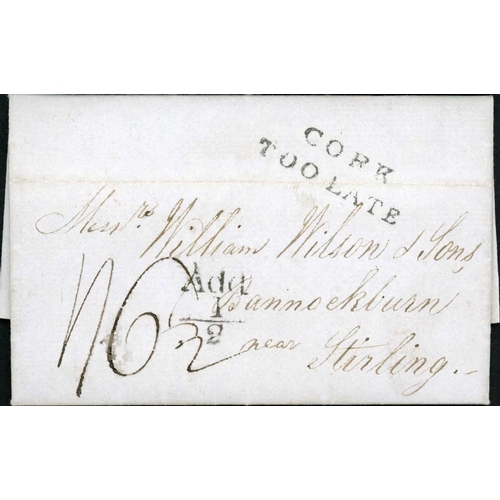 CORK
TOO LATE
Messrs William Wilson & Sons
Bannockburn
near
Stirling.
Addl
1
2